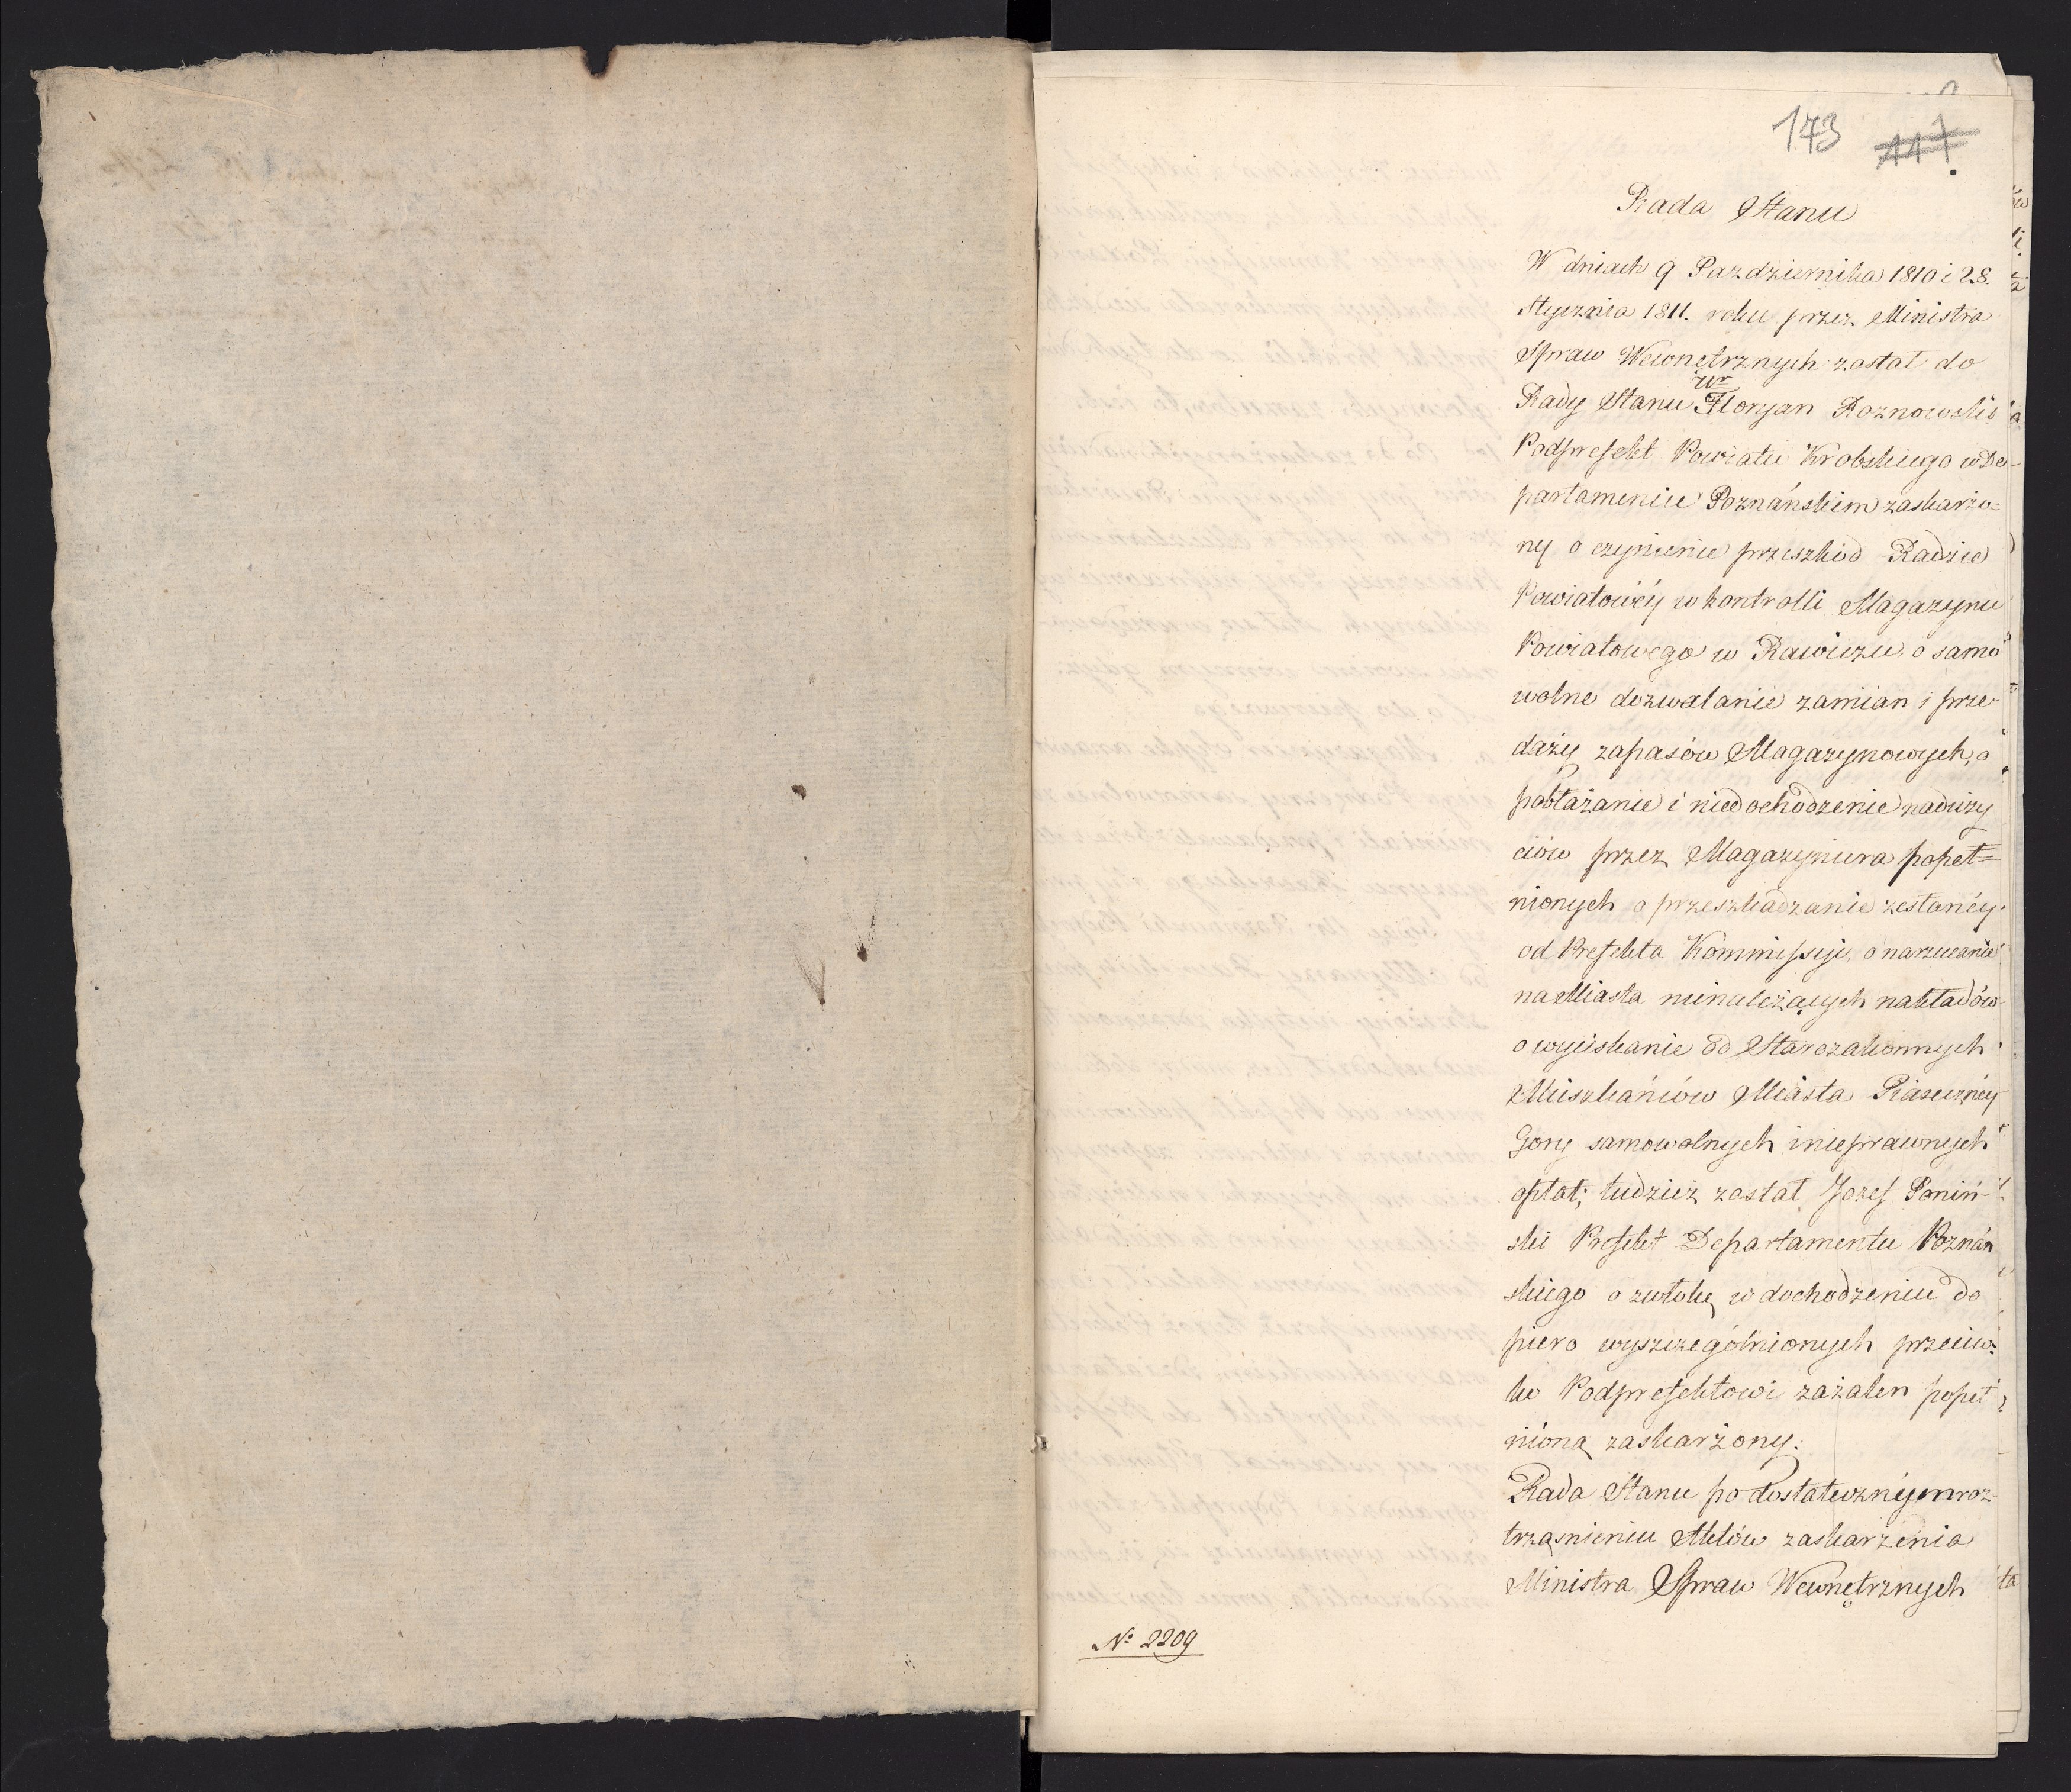 173 117.
Rada Stanu
W dniach 9 Pazdziernika 1810 i 28.
Stycznia 1811. roku przez Ministra
Spraw Wewnętrznych został do
Wr
Rady Stanu Floryan Roznowski
Podprefekt Powiatu Krobskiego w De-
partamencie Poznańskim zaskarżo=
ny o czynienie przeszkód Radzie
Powiatowéy w kontrolli Magazynu
Powiatowego w Rawiczu, o samo
wolne dozwalanie zamian i prze-
daży zapasów Magazynowych, o
pobłażanie i niedochodzenie naduży
ciów przez Magazyniera popeł=
nionych o przeszkadzanie zesłanéy
od Prefekta Kommissyi, o narzucanie
na Miasta nienależących nakładów
o wyciskanie od Starozakonnych
Mieszkańców Miasta Piaseczney
Gory samowolnych i nieprawnych
opłat; tudzież został Jozef Poniń-
ski Prefekt Departamentu Poznań
skiego o zwłokę w dochodzeniu do
piero wyszczególnionych przeciw-
ko Podprefektowi zażaleń popeł
nioną zaskarżony.
Rada Stanu po dostatecznym roz-
trząśnieniu Aktów zaskarżenia
Ministra Spraw Wewnętrznych
No 2209